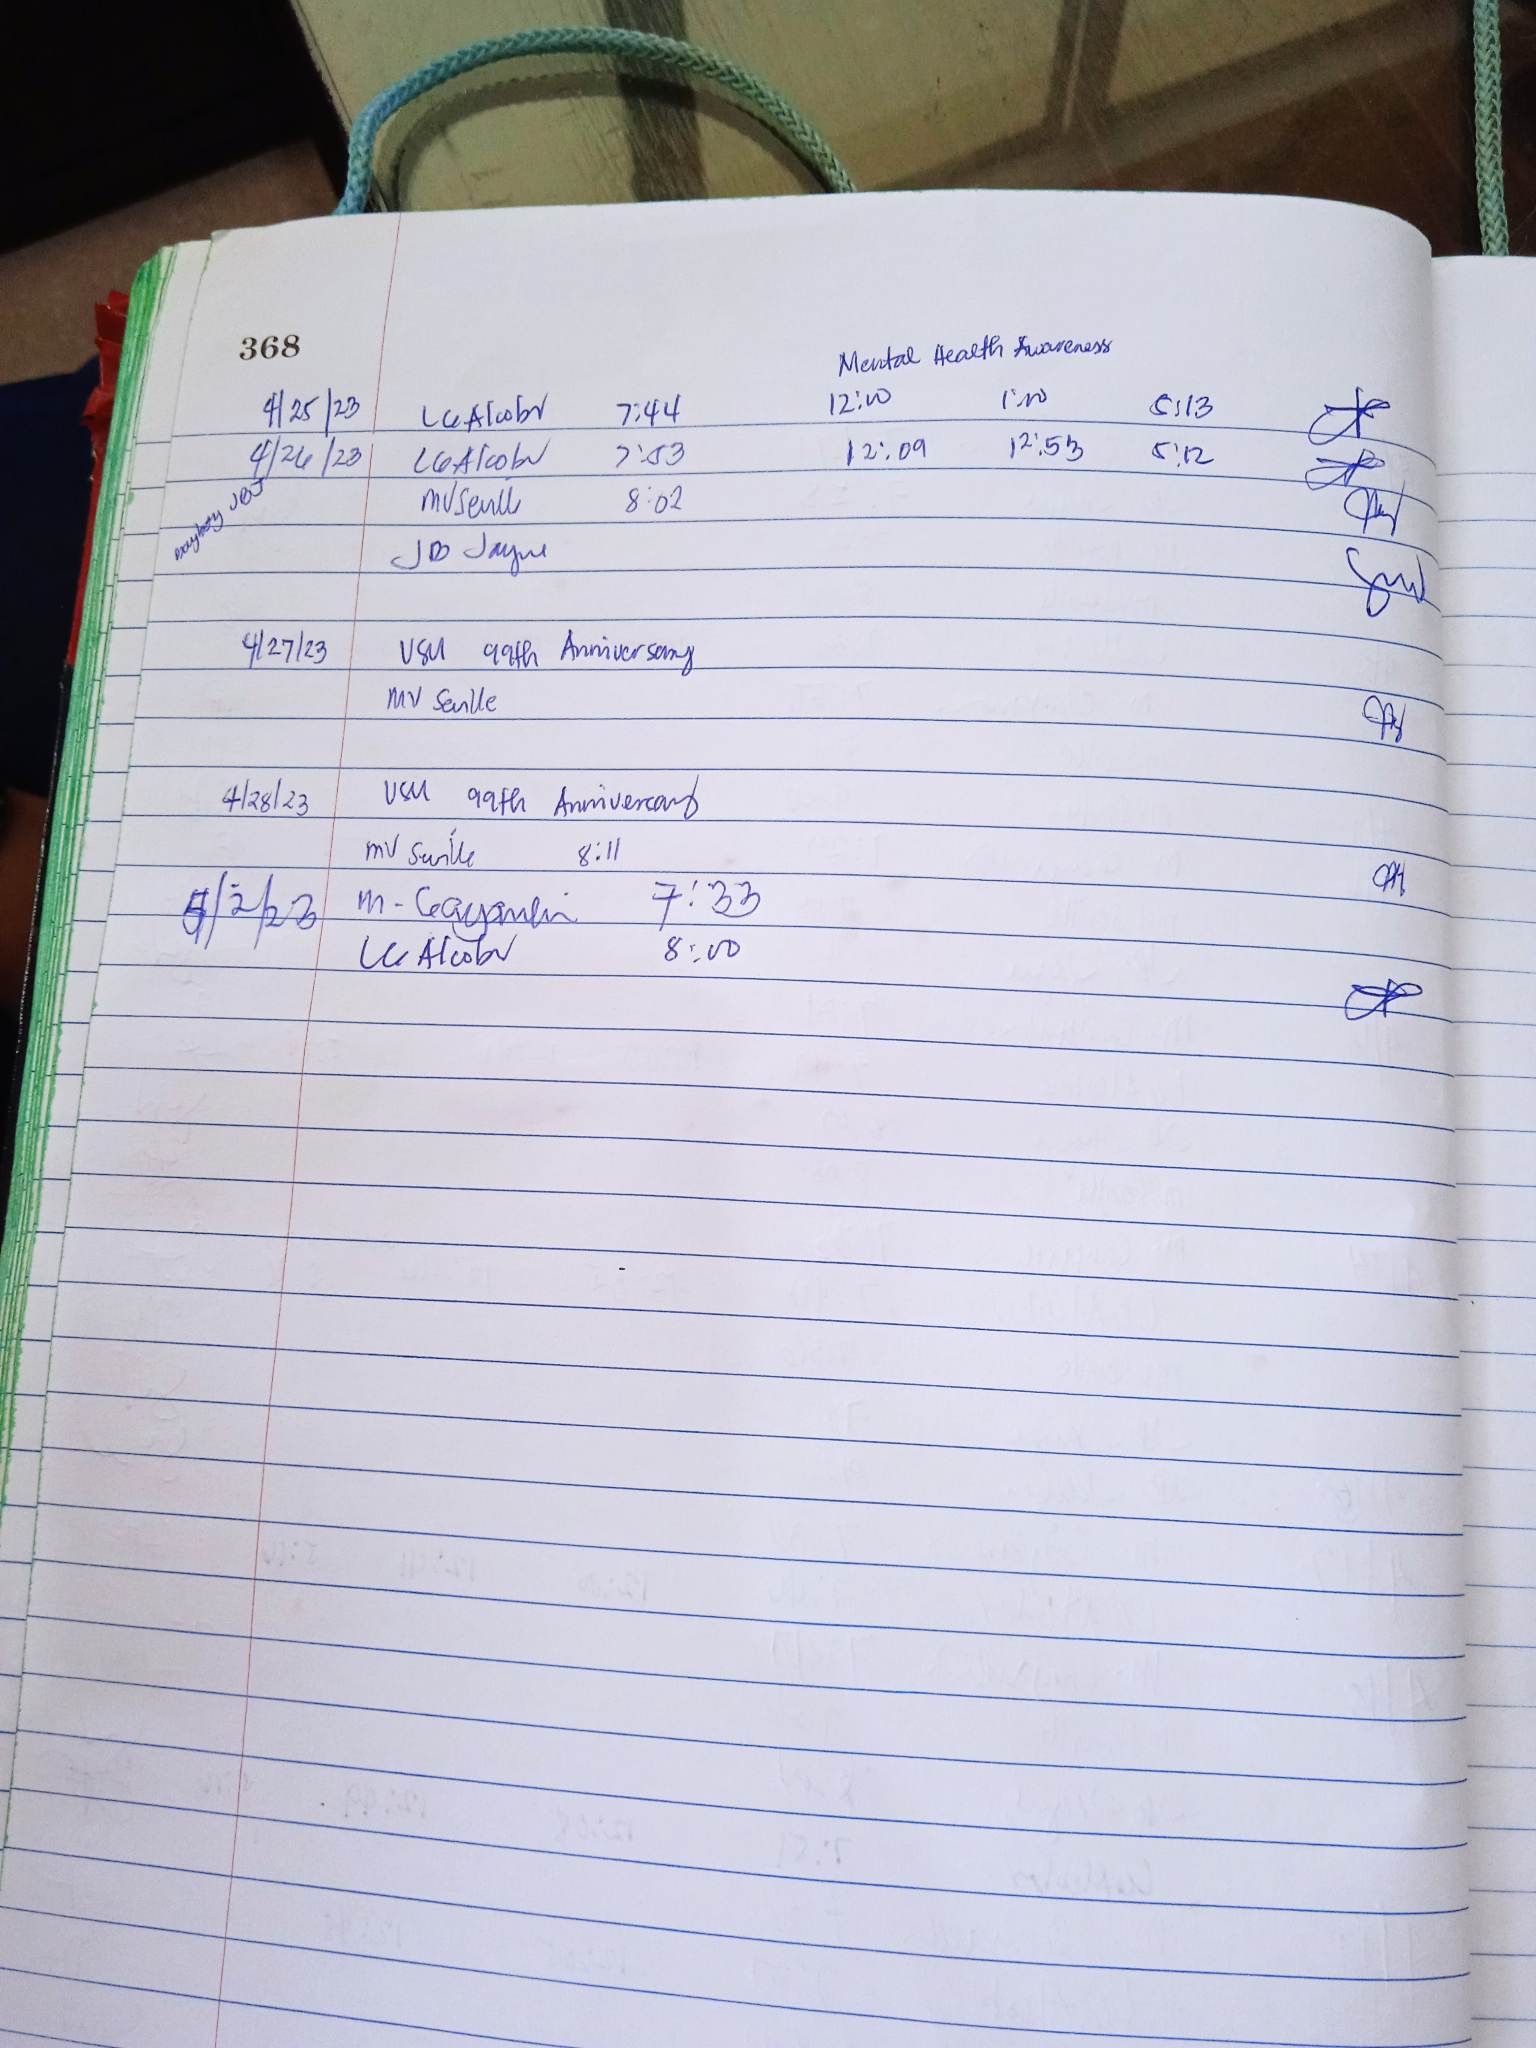 368
Mental Health Awareness
4/25/23 LG Alcober 7:44 12:00 1:00 5:13
4/26/23 LG Alcober 7:53 12:09 12:53 5:12
MV Seville 8:02
JB
4/27/23 VSU 99th Anniversary
MV Seville
4/28/23 VSU 99th Anniversary
MV Seville 8:11
5/2/23 M- 7:33
LG Alcober 8:00